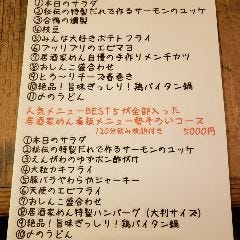 ①本日のサラダ
②秘伝の特製だれで作るサーモンのユッケ
③合鴨の燻製
④枝豆
⑤みんな大好きポテトフライ
⑥プリプリのエビマヨ
⑦居酒家めん自慢の手作りメンチカツ
⑧おしんこ盛合わせ
⑨とろ〜りチーズ春巻き
⑩絶品!旨味ぎっしり!鶏パイタン鍋
⑪〆のうどん
人気メニューBEST5が全部入った
居酒家めん看板メニュー勢ぞろいコース
120分飲み放題付き 5000円
①本日のサラダ
②秘伝の特製だれで作るサーモンのユッケ
③えんがわのゆずポン酢がけ
④大粒カキフライ
⑤豚バラやわらかジャーキー
⑥天使のエビフライ
⑦おしんこ盛合わせ
⑧居酒家めん特製ハンバーグ(大判サイズ)
⑨絶品!旨味ぎっしり!鶏パイタン鍋
⑩〆のうどん